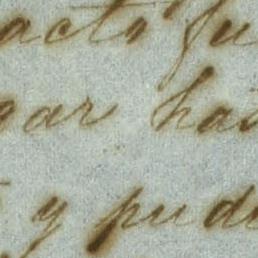 acto, fu
gar has
y pud